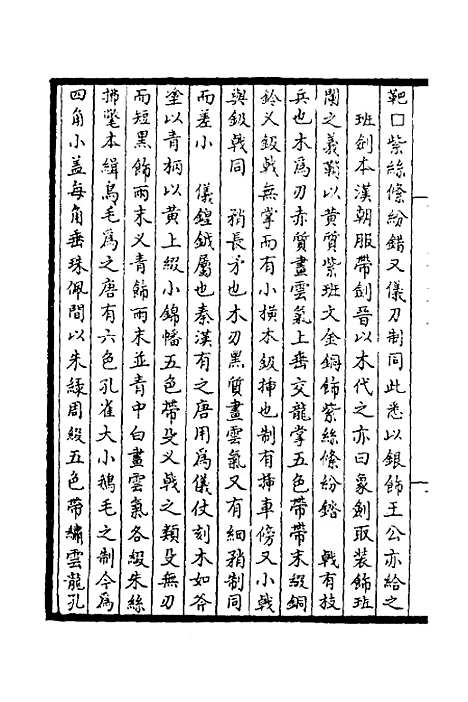 靶口紫絲絛紛錯又儀刀制同此悉以銀飾王公亦給之
班劍本漢朝服帶劍晉以木代之亦曰象劍取裝飾班
闌之義鞘以黃質紫班文金銅飾紫絲絛紛錔　戟有枝
兵也木爲刃赤質畫雲氣上垂交龍掌五色帶帶末綴銅
鈴又鈒戟無掌而有小橫木鈒揷也制有揷車傍又小戟
與鈒戟同　矟長矛也木刃黑質畫雲氣又有細矟制同
而差小　儀鍠鉞屬也秦漢有之唐用爲儀仗刻木如斧
塗以青柄以黃上綴小錦幡五色帶殳义戟之類殳無刃
而短黑飾兩末义青飾兩末並青中白畫雲氣各綴朱絲
拂氅本緝鳥毛爲之唐有六色孔雀大小鵝毛之制今爲
四角小蓋每角垂珠佩間以朱綠周綴五色帶繡雲龍孔